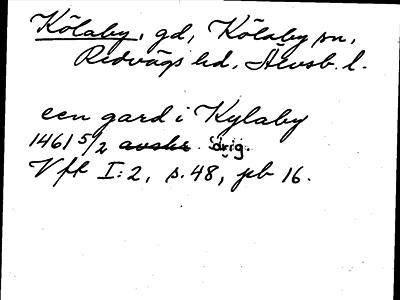 Kölaby, gd, Kölaby sn,
Redvägs hd, Älvsb. l.
een gard i Kylaby
1461 5/2 avskr. Sdrig.
Vft I:2, s. 48, pb 16.